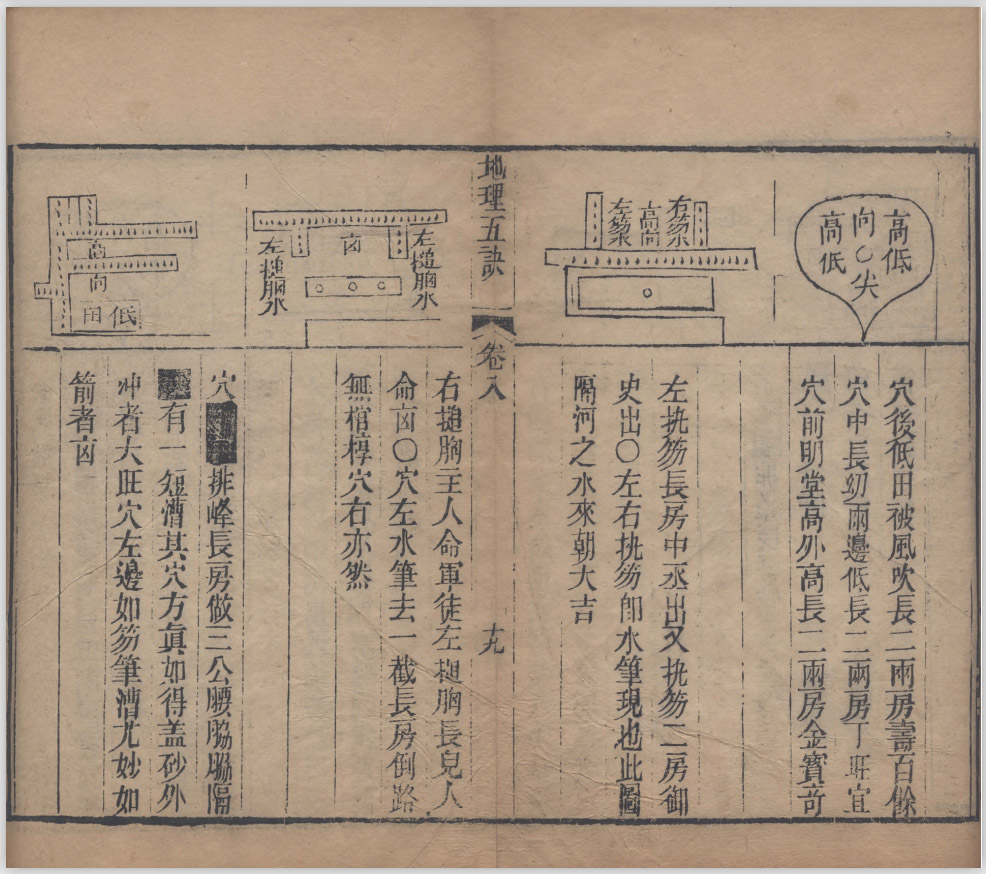 高低
向○尖
高低
穴後低田被風吹長二兩房壽百餘
穴中長幼兩邊低長二兩房丁旺宜
穴前明堂高外高長二兩房金寶奇
右笏水
高向
左笏水
左执笏長房中丞出又执笏二房御
史出○左右执笏卽水筆現也此圖
隔河之水來朝大吉
地理五訣
卷八
十九
左搥胸水
凶
左搥胸水
右搥胸主人命軍徒左搥胸長兒人
命凶○穴左水筆去一截長房倒路
無棺椁穴右亦然
高
向
低
田
穴排峰長房做三公腰脇脇隔
有一短漕其穴方眞如得盖砂外
冲者大旺穴左邊如笏筆漕尤妙如
箭者凶